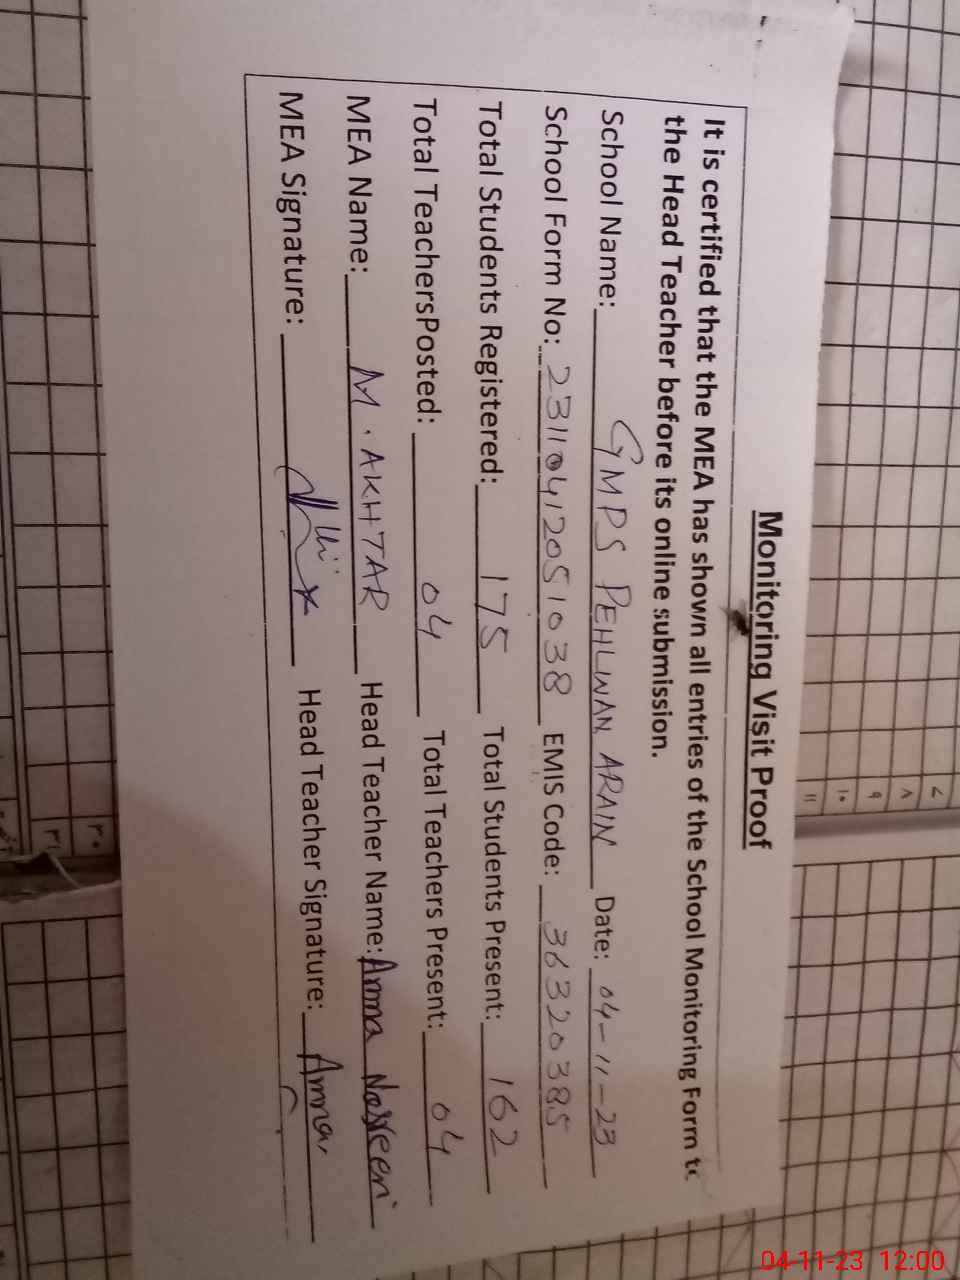 Monitoring Visit Proof
It is certified that the MEA has shown all entries of the School Monitoring Form to
the Head Teacher before its online submission.
School Name: GMPS PEHLWAN ARAIN Date: 04-11-23
School Form No: 23110412051038 EMIS Code: 36320385
Total Students Registered: 175 Total Students Present: 162
Total TeachersPosted: 04 Total Teachers Present: 04
MEA Name: M. AKHTAR Head Teacher Name: Amna Nasreen
MEA Signature: Head Teacher Signature: Amna
04-11-23 12:00